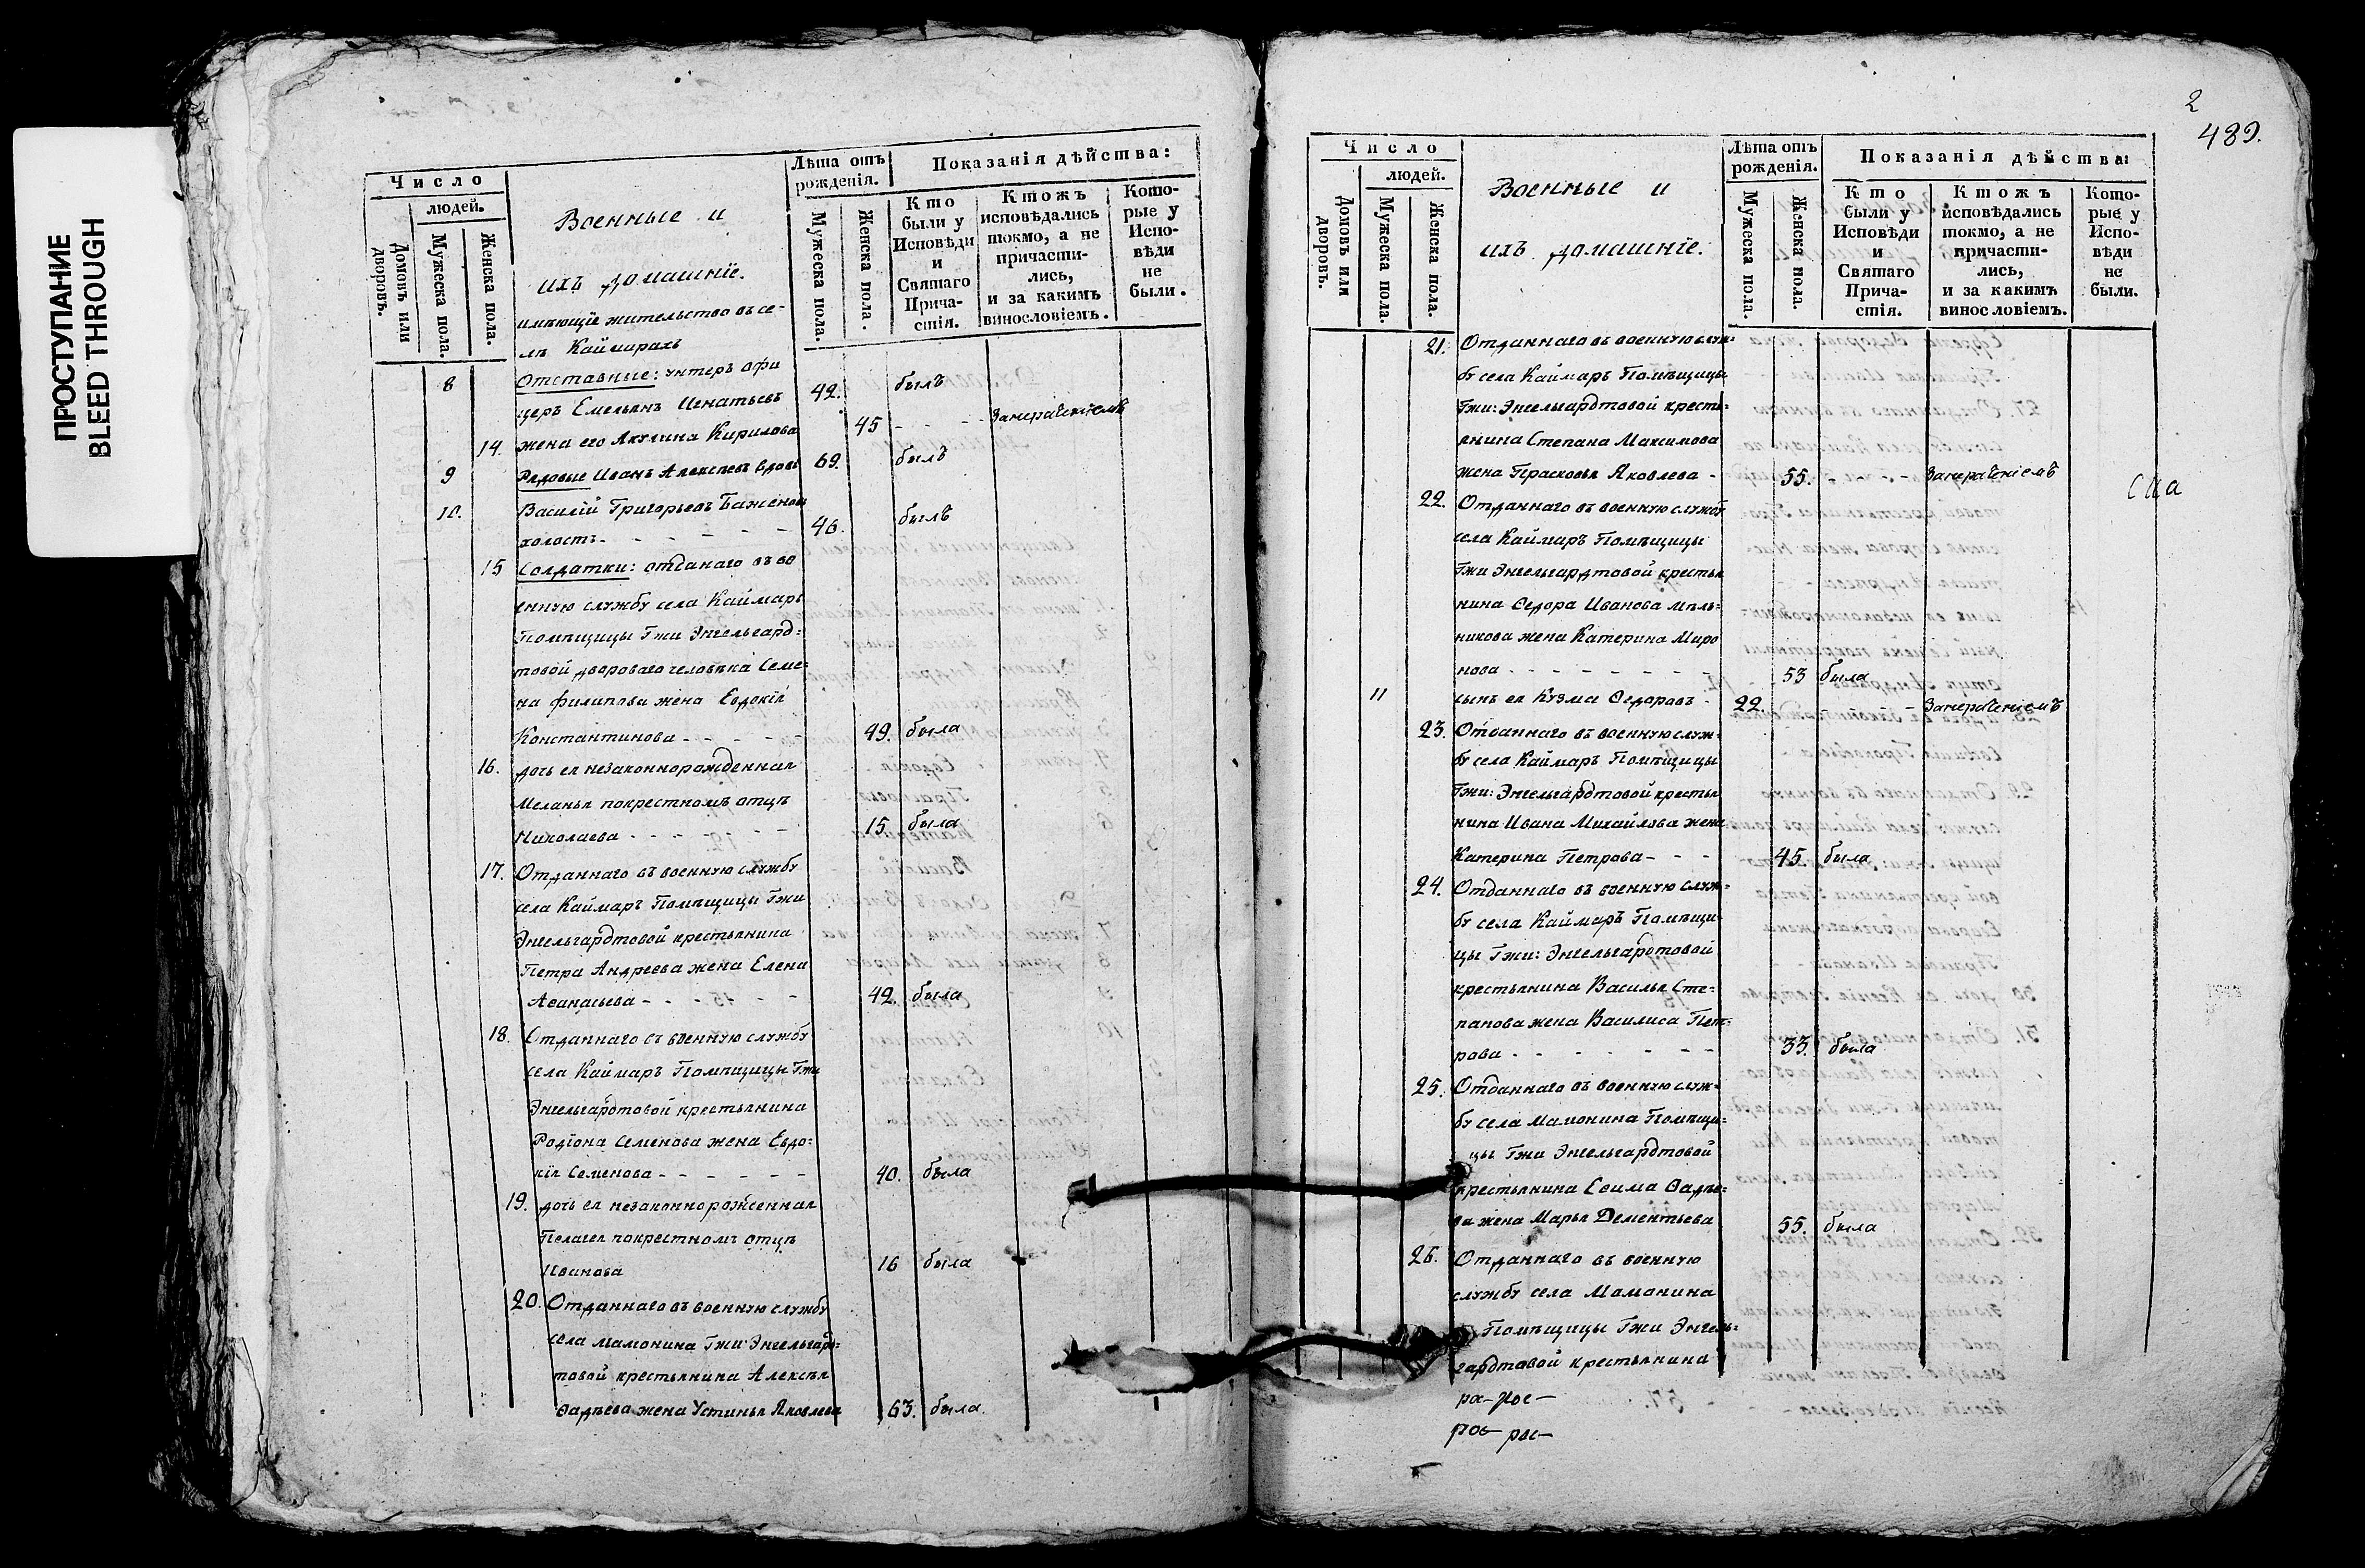 ПРОСТУПАНИЕ
BLEED THROUGH
Число
людей.
Домовъ или дворовъ.
Мужеска пола.
Женска пола.
Военные и
ихъ домашнїе.
Лѣта отъ рожденія.
Мужеска пола.
Женска пола.
Показанія дѣйства:
Кто были у Исповѣди и Святаго Прича-стія.
Ктожъ исповѣдались токмо, а не причасти-лись, и за какимъ винословіемъ.
Кото-рые у Испо-вѣди не были.
имѣющїе жительство въ се-
лѣ Каймарахъ
8 Отставные: унтеръ офи
церъ Емельянъ Игнатьевъ 42. былъ
14. жена его Акулина Кирилова 45 - - - -
9 Рядовые Иванъ Алексѣевъ вдовъ 69. былъ
10. Василїй Григорьевъ Баженовъ
холостъ - - - - - - 46. былъ
15 Солдатки: отданаго въ во
енную службу села Каймаръ
Помѣщицы Гжи Энгельгард=
товой двороваго человѣка Семе=
на филипова жена Евдокїя
Константинова - - - - - 49. была
16. дочь ея незаконнорожденная
Меланья покрестномъ отцѣ
Николаева - - - - - - 15. была
17. Отданнаго въ военную службу
села Каймаръ Помѣщицы Гжи
Энгельгардтовой крестьянина
Петра Андреева жена Елена
Аѳанасьева - - - - - 42. была
18. Отданнаго въ военную службу
села Каймаръ Помѣщицы Гжи
Энгельгардтовой крестьянина
Родїона Семенова жена Евдо=
кїя Семенова - - - - - - 40. была
19. дочь ея незаконнорожденная
Пелагея покрестномъ отцѣ
Иванова 16 была
20. Отданнаго въ военную службу
села Мамонина Гжи Энгельгард=
товой крестьянина Алексѣя
Ѳадѣева жена Устинья Яковлева 63. была.
2
489.
Число
людей.
Домовъ или дворовъ.
Мужеска пола.
Женска пола.
Военные и
ихъ домашнїе.
Лѣта отъ рожденія.
Мужеска пола.
Женска пола.
Показанія дѣйства:
Кто были у Исповѣди и Святаго Прича-стія.
Ктожъ исповѣдались токмо, а не причасти-лись, и за какимъ винословіемъ.
Кото-рые у Испо-вѣди не были.
21. Отданнаго въ военную служ=
бу села Каймаръ Помѣщицы
Гжи: Энгельгардтовой кресть=
янина Степана Максимова
жена Прасковья Яковлева - 55. - - - -
22. Отданнаго въ военную службу
села Каймаръ Помѣщицы
Гжи Энгельгардтовой крестья
нина Ѳедора Иванова мѣль=
никова жена Катерина Миро
нова - - - - - - - - 53 была
11 сынъ ея Кузма Ѳедоровъ - 22. - - -
23. Отданнаго въ военную служ=
бу села Каймаръ Помѣщицы
Гжи: Энгельгардтовой крестья
нина Ивана Михайлова жена
Катерина Петрова - - - 45. была
24. Отданнаго въ военную служ=
бу села Каймаръ Помѣщи=
цы Гжи: Энгельгардтовой
крестьянина Василья Сте=
панова жена Василиса Пет=
рова - - - - - - - - 33. была
25. Отданнаго въ военную служ=
бу села Мамонина Помѣщи=
цы Гжи Энгельгардтовой
крестьянина Еѳима Ѳадѣе=
ва жена Марья Дементьева 55. была
26. Отданнаго въ военную
службу села Мамонина
Помѣщицы Гжи Энгель=
гардтовой крестьянина